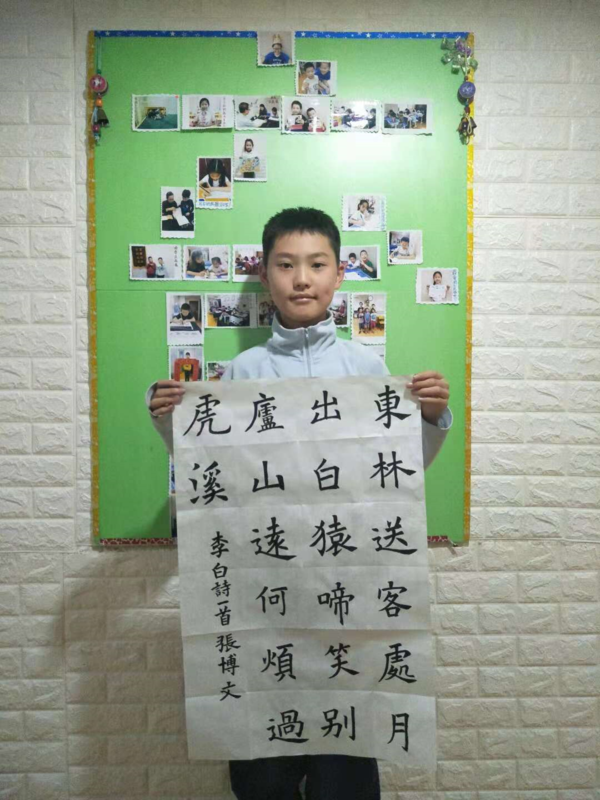 東林送客處月
出白猿啼笑别
廬山遠何煩過
虎溪
李白詩一首 張博文